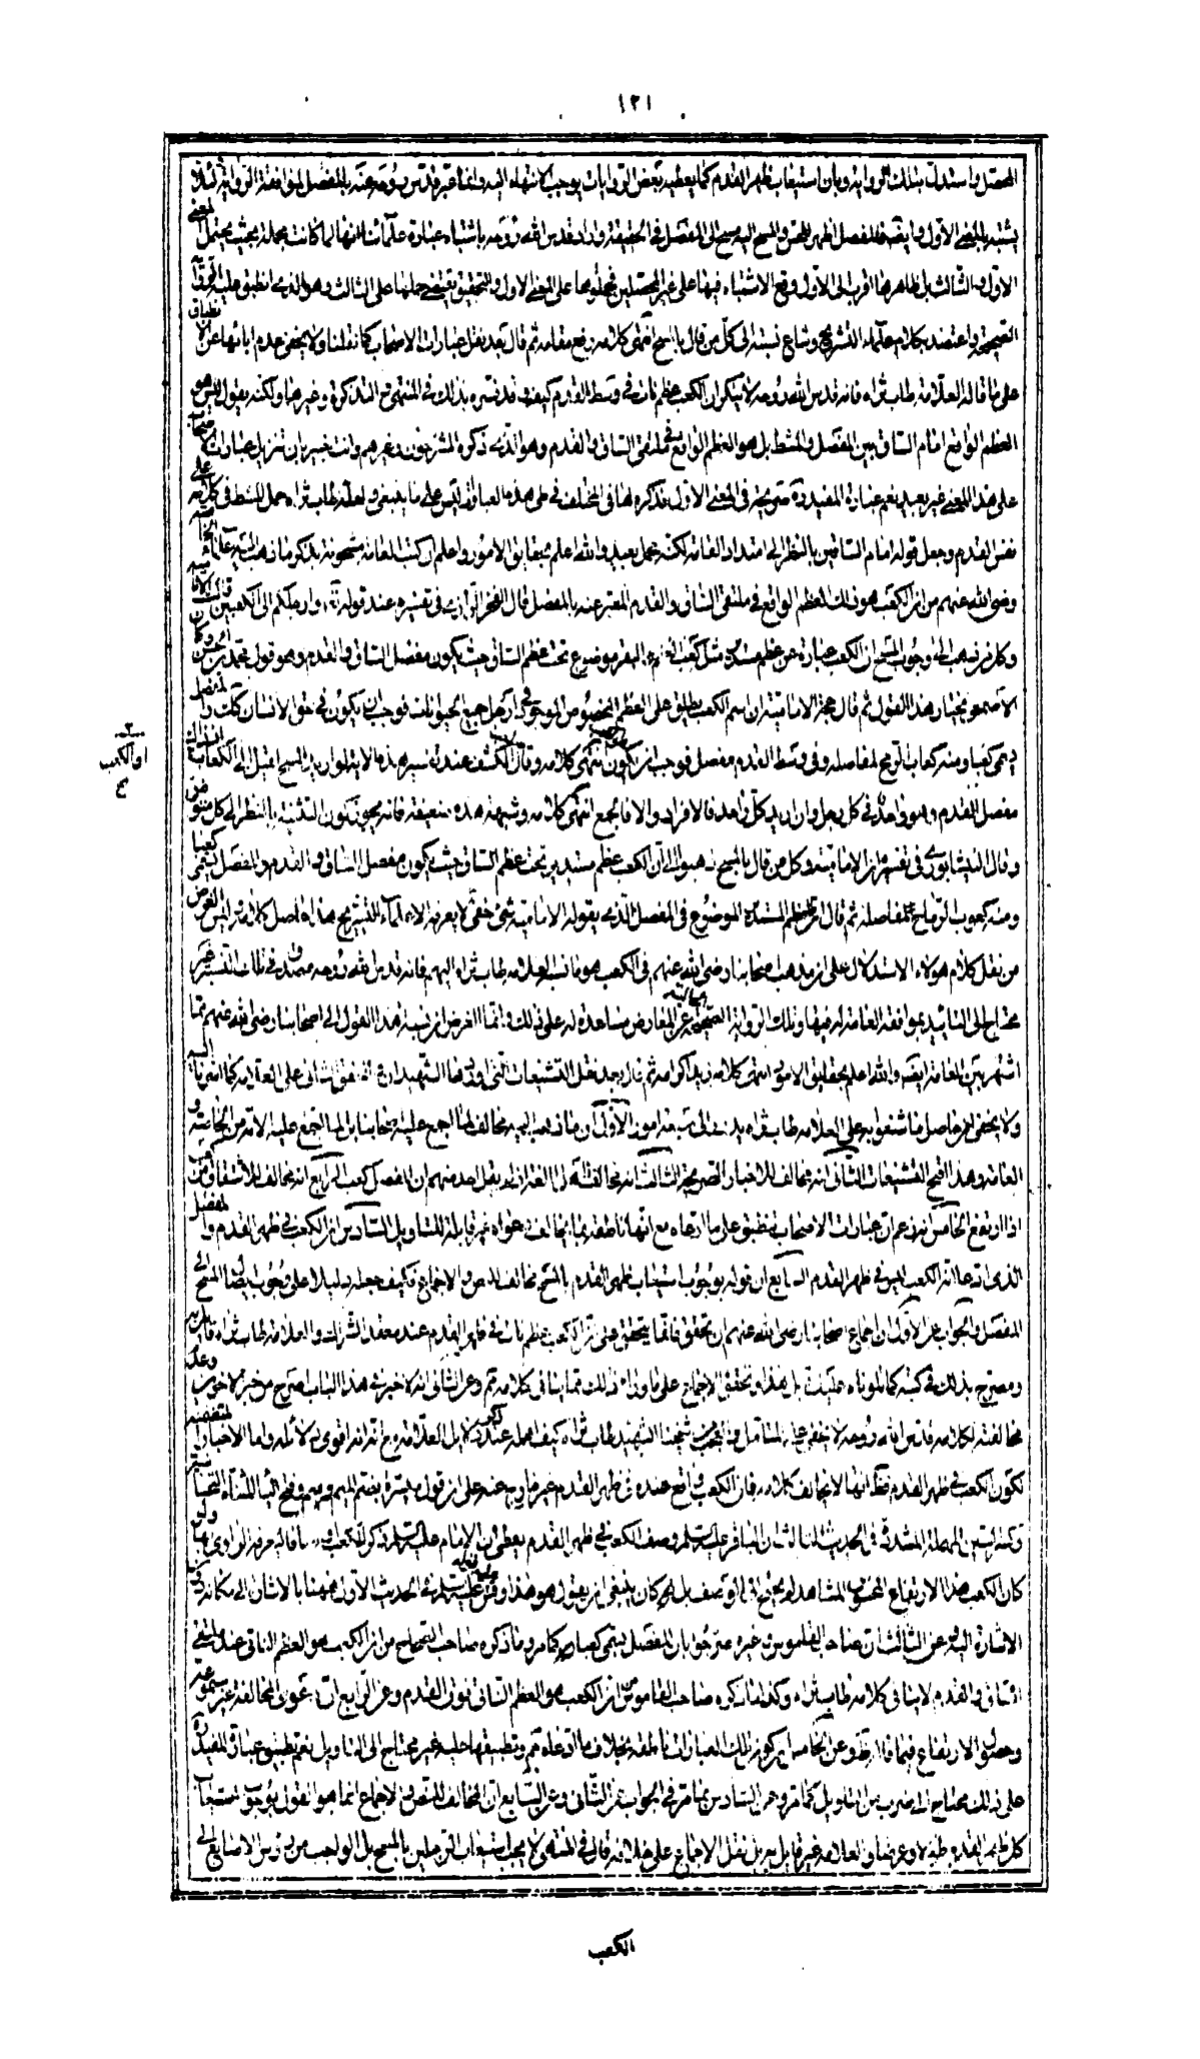 ١٢١
المفصل واستدل بتلك الرواية وبان استيعاب ظهر القدم كما يعطيه بعض الروايات يوجب الانتهاء اليه وانما عبر قدس روحه عنه بالمفصل لموافقة الرواية لئلا
يشتبه بالمعنى الاول وايضا فالمفصل اظهر للحس والمسح اليه مسح الى المفصل في الحقيقة واراد قدس الله روحه باشتباه عبارة علمائنا انها لما كانت مجملة بحيث يحتمل المعنى
الاول والثالث بل ظاهرها اقرب الى الاول وقع الاشتباه فيها على غير المحصلين فحملوها على المعنى الاول والتحقيق يقتضي حملها على الثالث وهو الذي انطبق عليه الرواية
الصحيحة واعتضد بكلام علماء التشريح وشاع نسبته الى كل من قال بالمسح انتهى كلامه رفع مقامه ثم قال بعد نقل عبارات الاصحاب كما نقلنا ولا يخفى عدم ابائها عن الانطباق
على ما قاله العلامة طاب ثراه فانه قدس الله روحه لا ينكر ان الكعب عظم نات في وسط القدم كيف وقد فسره بذلك في المنتهى والتذكرة وغيرهما ولكنه يقول ليس هو
العظم الواقع امام الساق بين المفصل والمشط بل هو العظم الواقع في ملتقى الساق والقدم وهو الذي ذكره المشرحون وغيرهم وانت خبير بان تنزيل عبارات
على هذا المعنى غير بعيد نعم عبارة المفيد ره صريحة في المعنى الاول فذكره لها في المختلف في طي هذه العبارات ليس على ما ينبغي ولعله طاب ثراه حمل المشط في كلامه على
نفس القدم وجعل قوله امام الساقين بالنظر الى امتداد القامة لكنه محمل بعيد والله اعلم بحقايق الامور واعلم ان كتب العامة مشحونة بذكر ما ذهب اليه علماؤنا
رضي الله عنهم من ان الكعب هو ذلك العظم الواقع في ملتقى الساق والقدم المعبر عنه بالمفصل قال الفخر الرازي في تفسيره عند قوله تعالى وارجلكم الى الكعبين قالت الامامية
وكل من ذهب الى وجوب المسح ان الكعب عبارة عن عظم مستدير مثل كعب الغنم والبقر موضوع تحت عظم الساق حيث يكون مفصل الساق والقدم وهو قول محمد بن الحسن وكان
الاصمعي يختار هذا القول ثم قال حجة الامامية ان اسم الكعب يطلق على العظم المخصوص الموجود في ارجل جميع الحيوانات فوجب ان يكون في حق الانسان كذلك والمفصل
يسمى كعبا ومنه كعاب الرمح لمفاصله وفي وسط القدم مفصل فوجب ان يكون انتهى كلامه وقال الكشف عند تفسير هذه الاية لو اريد المسح لقيل الى الكعاب
او الكعب
مفصل القدم وهو واحد في كل رجل وان اريد كل واحد فالافراد والا فالجمع انتهى كلامه وشبهته هذه ضعيفة فانه يجوز ان تكون التثنية بالنظر الى كل متوضئ
وقال النيشابوري في تفسيره ان الامامية وكل من قال بالمسح ذهبوا الى ان الكعب عظم مستدير تحت عظم الساق حيث يكون مفصل الساق والقدم والمفصل يسمى كعبا
ومنه كعوب الرماح لمفاصله ثم قال ان العظم المستدير الموضوع في المفصل الذي يقوله الامامية شئ خفي لا يعرفه الا علماء التشريح هذا حاصل كلامه وليس الغرض
من نقل كلام هؤلاء الاستدلال على ان مذهب اصحابنا رضي الله عنهم في الكعب هو ما نسبه العلامة طاب ثراه اليهم فانه قدس الله روحه مصدق في تلك النسبة غير
محتاج الى التأييد بموافقة العامة له فيها وتلك الرواية الصحيحة عن المعارض مساعدة له على ذلك وانما الغرض ان نسبة هذا القول الى اصحابنا رضي الله عنهم مما
اشتهر بين العامة ايضا والله اعلم بحقايق الامور انتهى كلامه زيد اكرامه ثم قال بعد نقل التشنيعات التي اوردها الشهيدان والمحقق الثاني على العلامة كما اشرنا اليه
ولا يخفى ان حاصل ما شنعوا به على العلامة طاب ثراه يدور على سبعة امور الاول ان ما ذهب اليه مخالف لما اجمع عليه اصحابنا بل لما اجمع عليه الامة من الخاصة و
العامة وهذا اقبح التشنيعات الثاني انه مخالف للاخبار الصريحة الثالث انه مخالف لاهل اللغة اذ لم يقل احد منهم ان المفصل كعب الرابع انه مخالف للاشتقاق من كعب
اذا ارتفع الخامس انه زعم ان عبارات الاصحاب تنطبق على ما ادعاه مع انها ناطقة بما يخالف دعواه غير قابلة للتأويل السادس ان الكعب في ظهر القدم والمفصل
الذي ادعى انه الكعب ليس في ظهر القدم السابع ان قوله بوجوب استيعاب ظهر القدم بالمسح مخالف للنص والاجماع فكيف جعله دليلا على وجوب ايصال المسح الى
المفصل والجواب عن الاول ان اجماع اصحابنا رضي الله عنهم ان تحقق فانما يتحقق على ان الكعب عظم نات في ظهر القدم عند معقد الشراك والعلامة طاب ثراه قائل به
ومصرح بذلك في كتبه كما تلوناه عليك بل هذا وتحقق الاجماع على ما وراء ذلك مما ينافي كلامه ثم وعن الثاني انه لا خبر في هذا الباب اصرح من خبر الاخوين وعدم
مخالفته لكلامه قدس الله روحه لا تخفى على المتأمل ومن العجب من شيخنا الشهيد طاب ثراه كيف اهمله عند ذكر دلايل العلامة مع انه اقوى دلائله واما الاخبار المتضمنة
لكون الكعب في ظهر القدم فظ انها لا تخالف كلامه فان الكعب واقع عنده في ظهر القدم غير خارج عنه على ان قول ميسرة بضم الميم وفتح الياء المثناة التحتانية
وكسر السين المهملة المشددة في الحديث الثالث ان الباقر عليه السلم وصف الكعب في ظهر القدم يعطي ان الامام عليه السلم ذكر للكعب اوصافا ليعرفه الراوي بها ولو
كان الكعب هذا الارتفاع المحسوس المشاهد لم يحتج الى الوصف بل كان ينبغي ان يقول هو هذا وقس عليه قوله عليه السلم في الحديث الاول ههنا بالاشارة الى مكانه دون
الاشارة اليه وعن الثالث ان صاحب القاموس وغيره صرحوا بان المفصل يسمى كعبا كما مر وما ذكره صاحب الصحاح من ان الكعب هو العظم الناتي عند ملتقى
الساق والقدم لا ينافي كلامه طاب ثراه وكذا ما ذكره صاحب القاموس ان الكعب هو العظم الناتي فوق القدم وعن الرابع ان دعوى المخالفة غير مسموعة
وحصول الارتفاع فيما قاله ظ وعن الخامس ان كون تلك العبارات ناطقة بخلاف ما ادعاه ثم وتطبيقها عليه غير محتاج الى التاويل نعم تطبيق عبارة المفيد ره
على ذلك محتاج الى ضرب من التأويل كما مر وعن السادس بما مر في الجواب عن الثاني وعن السابع ان المخالف للنص والاجماع انما هو القول بوجوب استيعاب
كل ظهر القدم طولا وعرضا والعلامة غير قائل به بل نقل الاجماع على خلافه قال في المنتهى لا يجب استيعاب الرجلين بالمسح بل الواجب من رؤس الاصابع الى
الكعب